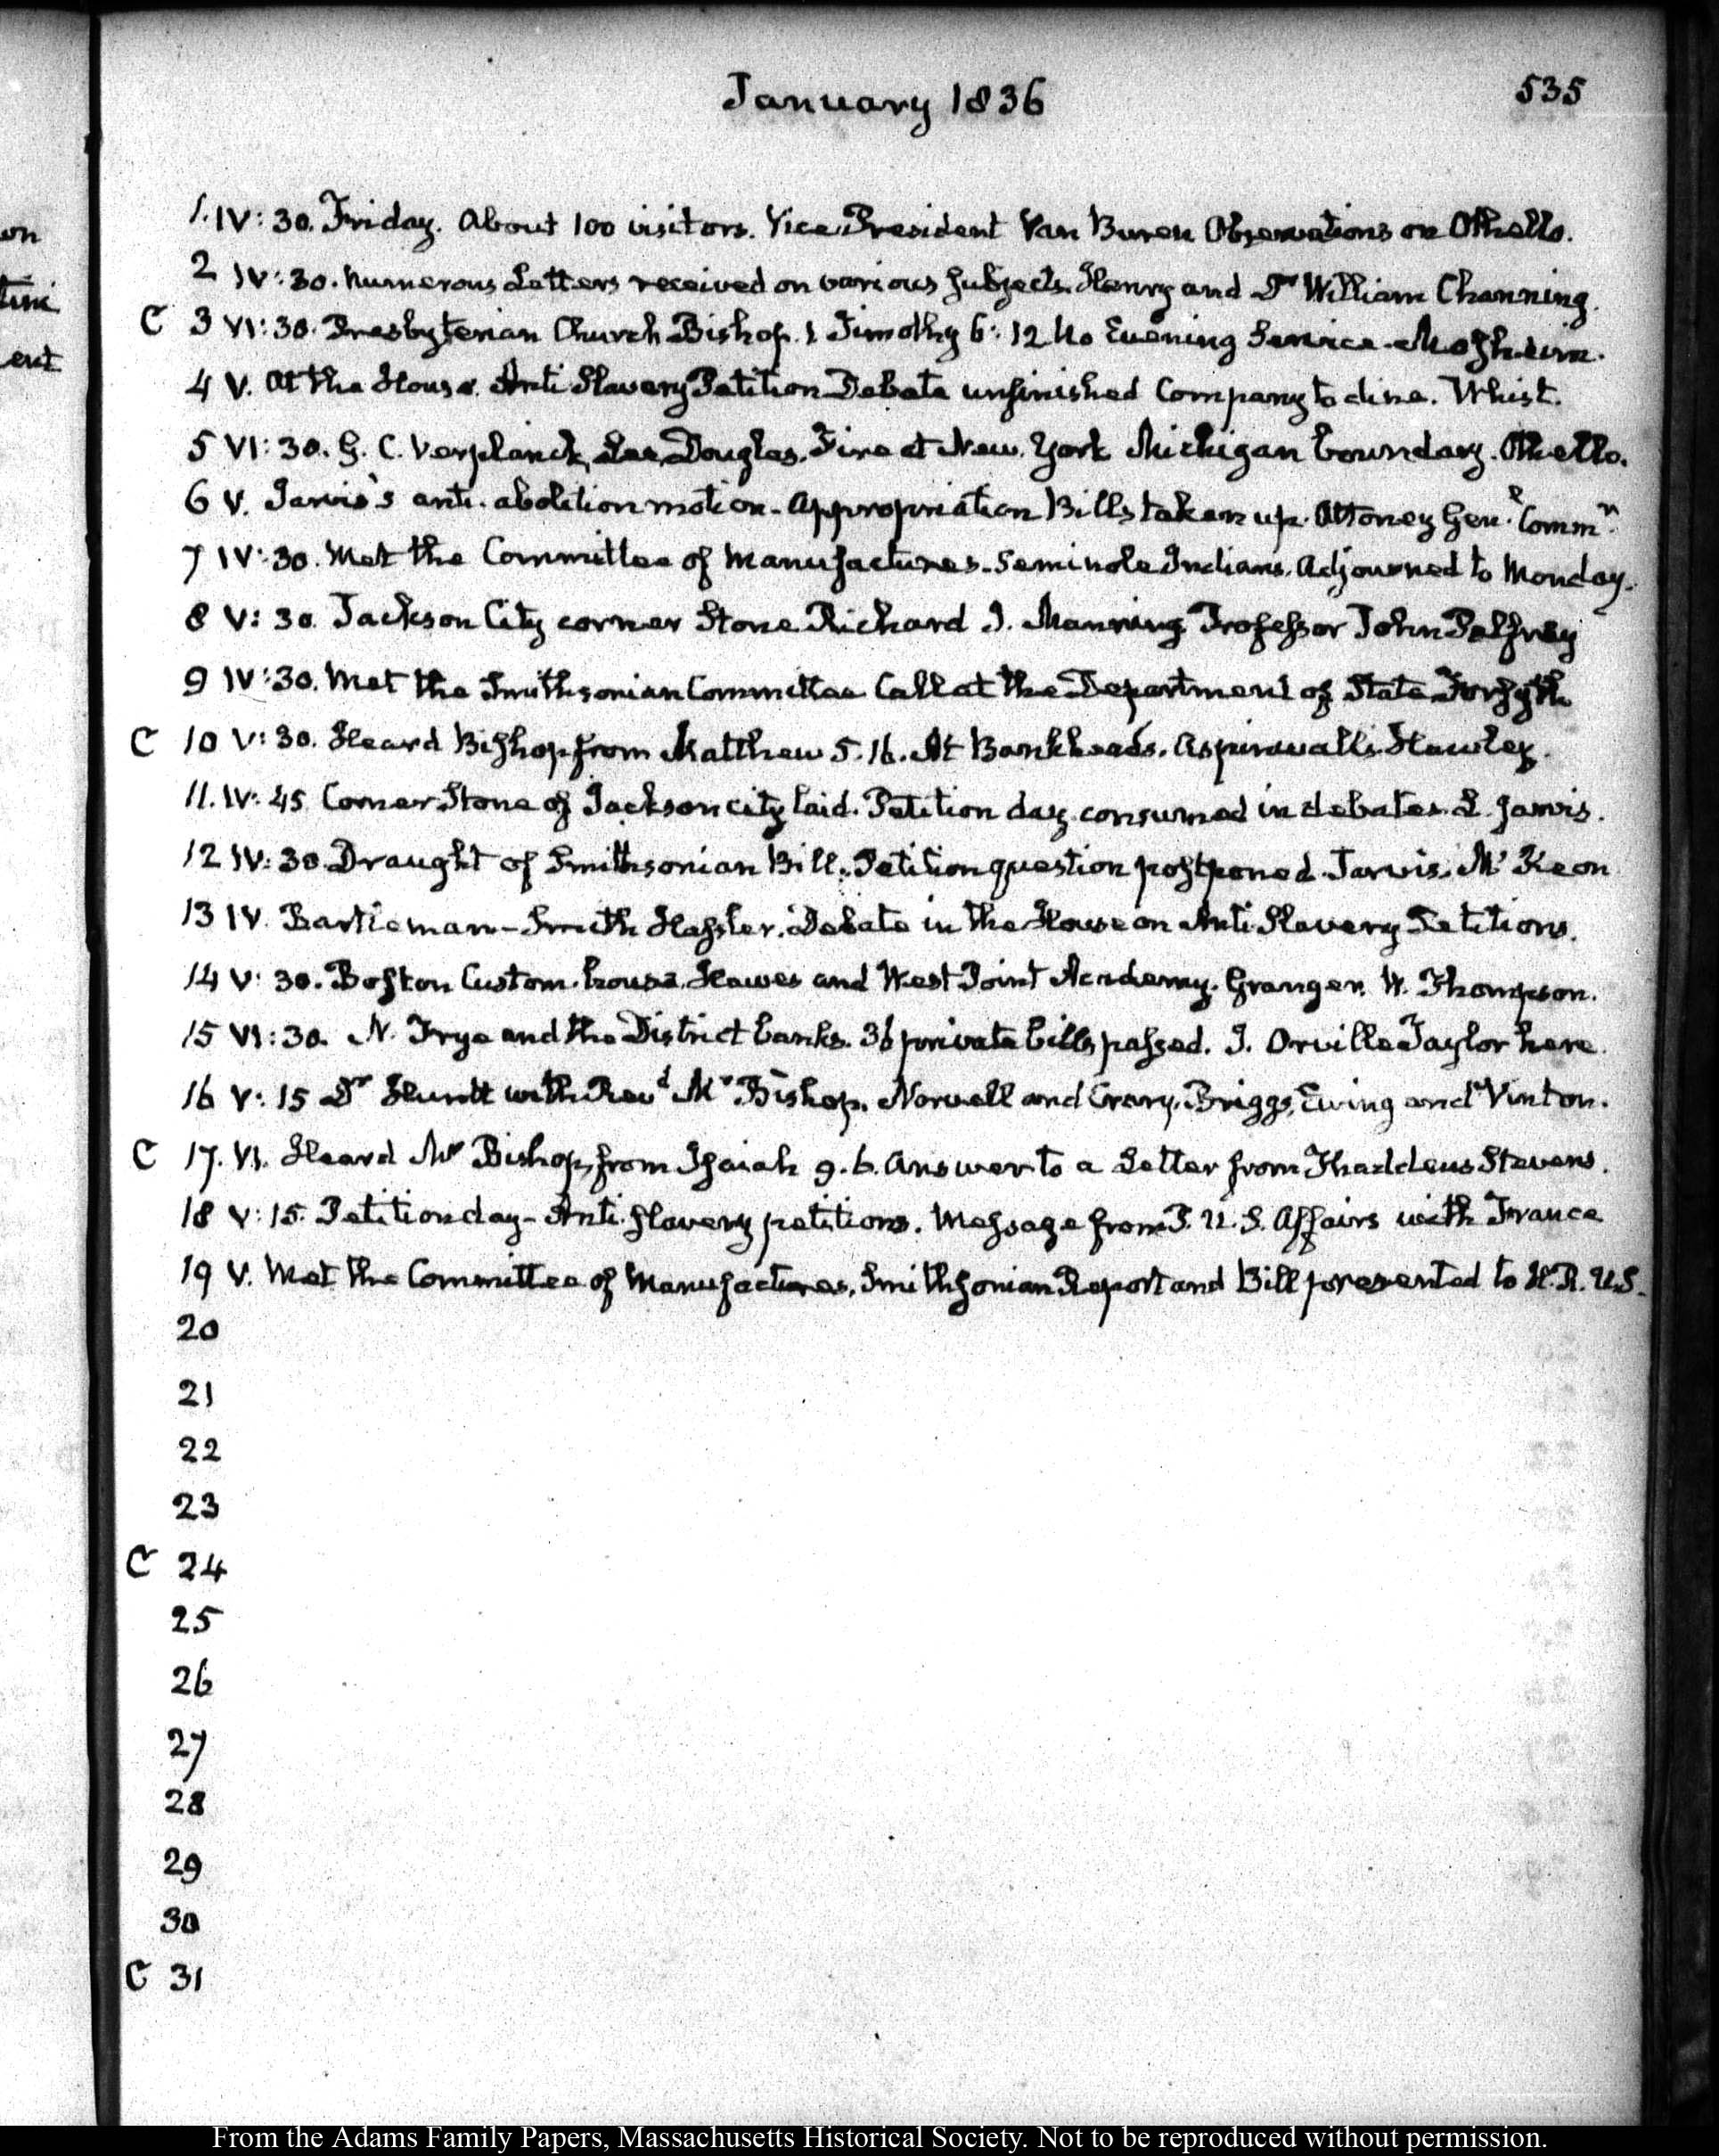 on
ent
January 1836
535
1. IV: 30. Friday. About 100 visitors. Vice President Van Buren Observations on Othello.
2 IV: 30. Numerous Letters received on various subjects. Henry and Dr William Channing.
C 3 VI: 30. Presbyterian Church Bishop. 1 Timothy 6: 12 No Evening Service. Mosheim.
4 V. At the House. Anti Slavery Petition Debate unfinished Company to dine. Whist.
5 VI: 30. G. C. Verplanck, Lee, Douglas. Fire at New York Michigan boundary. Othello.
6 V. Jarvis's anti. abolition motion. Appropriation Bills taken up. Attorney Genl Commn.
7 IV: 30. Met the Committee of Manufactures. Seminole Indians. Adjourned to Monday.
8 V: 30. Jackson City corner Stone Richard I. Manning Professor John Palfrey
9 IV: 30. Met the Smithsonian Committee Call at the Department of State Forsyth
C 10 V: 30. Heard Bishop from Matthew 5. 16. At Bankheads. Aspinwalls. Hawley.
11. IV: 45. Corner Stone of Jackson city laid. Petition day consumed in debates. L. Jarvis.
12 IV: 30. Draught of Smithsonian Bill. Petition question postponed. Jarvis. Mc Keon
13 IV. Bartleman-Smith Hassler. Debate in the House on Anti Slavery Petitions.
14 V: 30. Boston Custom. house. Hawes and West Point Academy. Granger. W. Thompson.
15 VI: 30. N. Frye and the District banks. 36 private bills passed. J. Orville Taylor here.
16 V: 15 Dr Huntt with Revd Mr Bishop. Norvell and Crary. Briggs, Ewing and Vinton.
C 17. VI. Heard Mr Bishop, from Isaiah 9. 6. Answer to a Letter from Thaddeus Stevens.
18 V: 15. Petition day- Anti. slavery petitions. Message from P. U. S. Affairs with France
19 V. Met the Committee of Manufactures. Smithsonian Report and Bill presented to H. R. U.S.
20
21
22
23
C 24
25
26
27
28
29
30
C 31
From the Adams Family Papers, Massachusetts Historical Society. Not to be reproduced without permission.